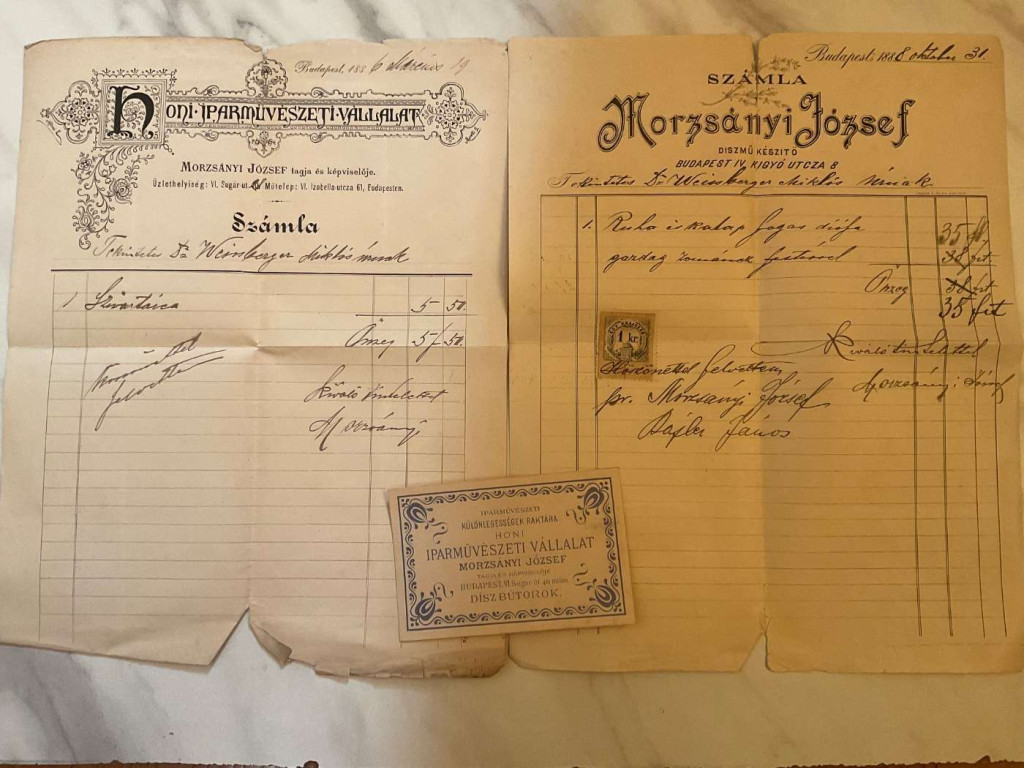 Budapest, 1886 Március 19
HONI·IPARMŰVÉSZETI·VÁLLALAT
MORZSÁNYI JÓZSEF tagja és képviselője.
Üzlethelyiség: VI. Sugár-ut Műtelep: VI. Izabella-utcza 61, Budapesten.
Számla
Tekintetes Dr Weinberger Miklós urnak
1 Szivartárca 5 50.
Összeg 5 50.
Köszönettel
felvettem
Kiváló tisztelettel
Morzsányi
Budapest, 1888 október 31.
SZÁMLA
Morzsányi József
DISZMŰ KÉSZITŐ
BUDAPEST IV. KIGYÓ UTCZA 8
Tekintetes Dr Weinberger Miklós Urnak
1. Ruha és kalap fogas diófa 35 frt
gazdag 38 frt.
Összeg 38 frt
35 frt
1 kr.
Kiváló tisztelettel
Köszönettel felvettem
Morzsányi József
pr. Morzsányi József
János
IPARMŰVÉSZETI
KÜLÖNLEGESSÉGEK RAKTÁRA
HONI
IPARMŰVÉSZETI VÁLLALAT
MORZSÁNYI JÓZSEF
TAGJA ÉS KÉPVISELŐJE
BUDAPEST, VI. Sugár út 46 szám.
DÍSZBÚTOROK.